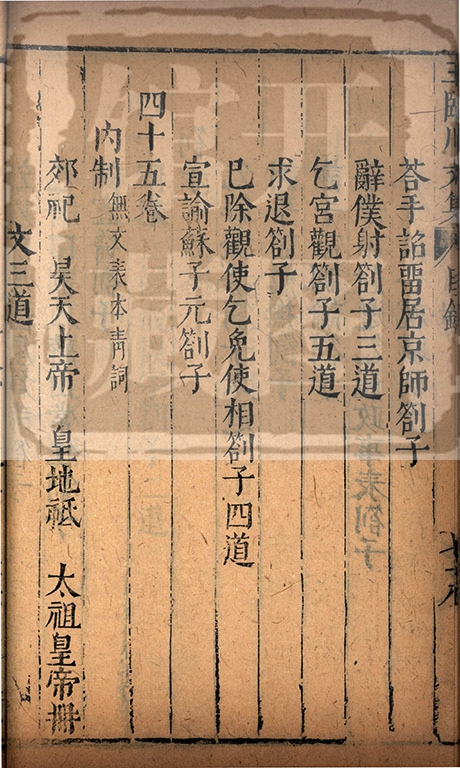 荅手詔畱居京師劄子
辭僕射劄子三道
乞宮觀劄子五道
求退劄子
已除觀使乞免使相劄子四道
宣諭蘇子元劄子
四十五卷
內制 無文表本青詞
郊祀 昊天上帝 皇地祗 太祖皇帝冊
文三道